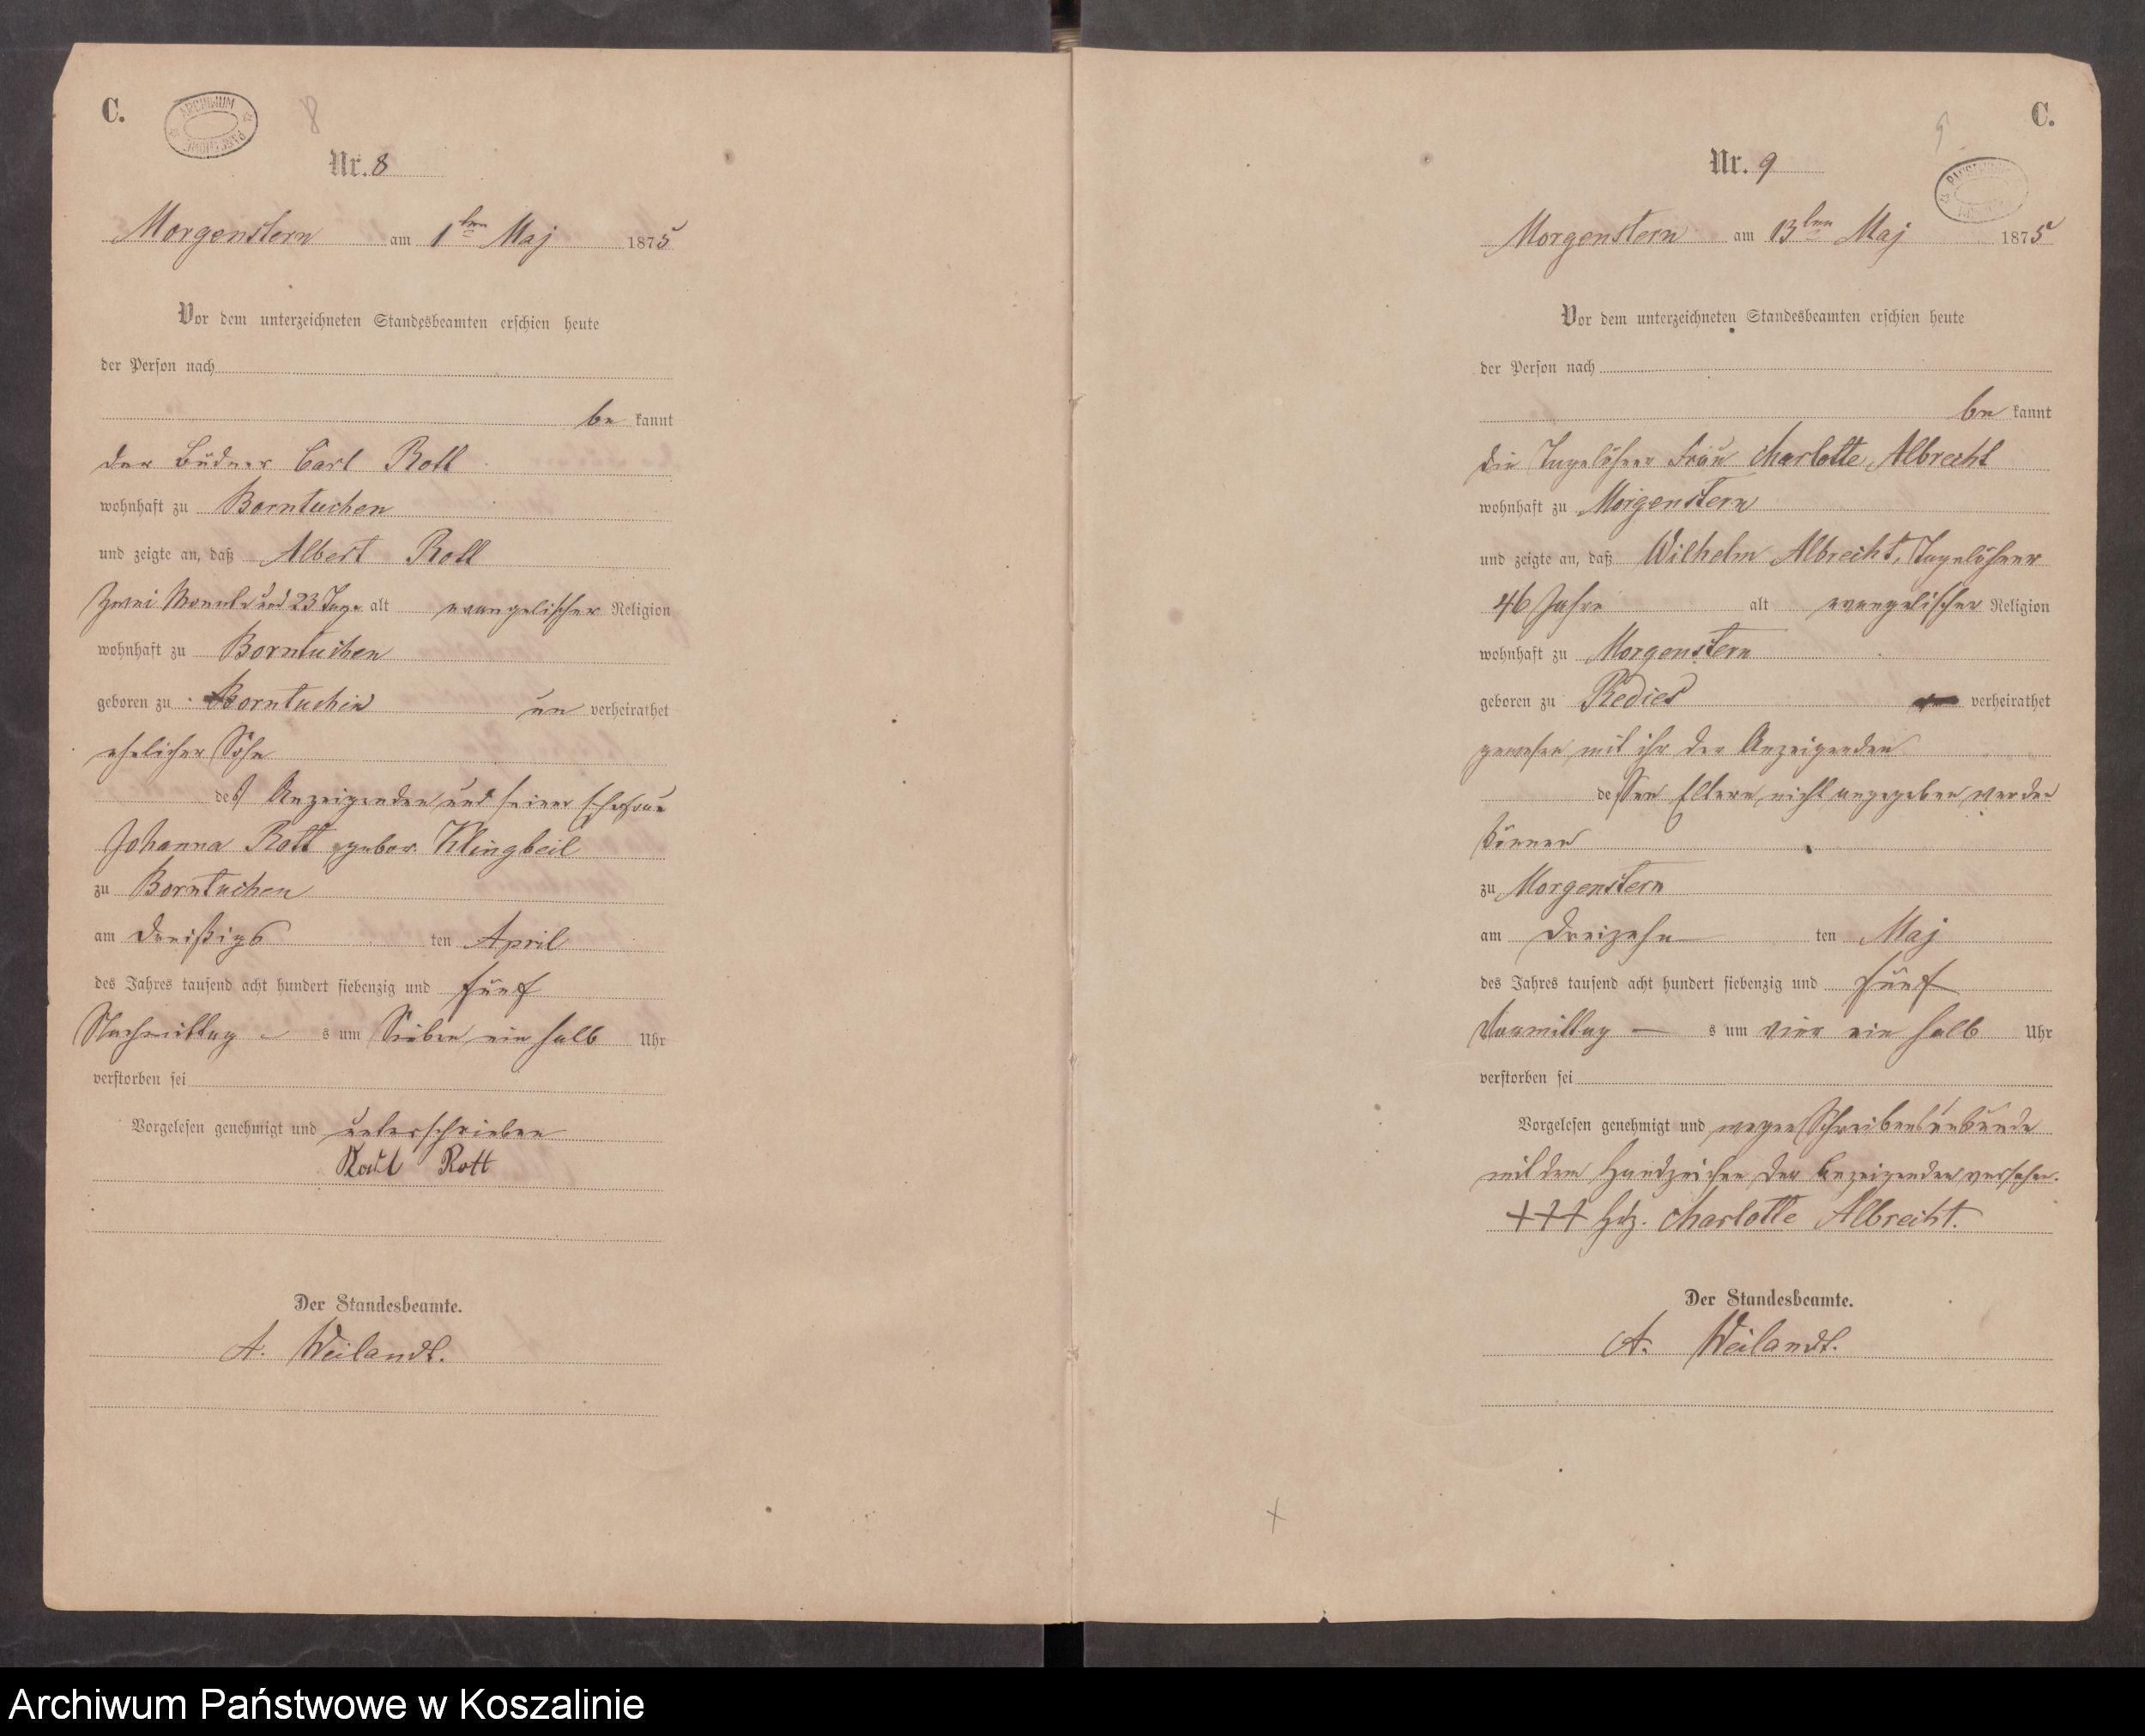 C.
ARCHIWUM PAŃSTWOWE
8
Nr. 8
Morgenstern am 1ten Maj 1875
Vor dem unterzeichneten Standesbeamten erschien heute
der Person nach
be kannt
der Büdner Carl Rott
wohnhaft zu Borntuchen
und zeigte an, daß Albert Rott
Zwei Monate und 23 Tage alt evangelischer Religion
wohnhaft zu Borntuchen
geboren zu Borntuchen un verheirathet
ehelicher Sohn
des Anzeigenden und seiner Ehefrau
Johanna Rott gebor. Klingbeil
zu Borntuchen
am dreißigs ten April
des Jahres tausend acht hundert siebenzig und fünf
Nachmittag s um Sieben ein halb Uhr
verstorben sei
Vorgelesen genehmigt und unterschrieben
Karl Rott
Der Standesbeamte.
A. Weilandt.
C.
9
Nr. 9
Morgenstern am 13ten Maj 1875
Vor dem unterzeichneten Standesbeamten erschien heute
der Person nach
be kannt
die Tagelöhner Frau Charlotte Albrecht
wohnhaft zu Morgenstern
und zeigte an, daß Wilhelm Albrecht, Tagelöhner
46 Jahre alt evangelischer Religion
wohnhaft zu Morgenstern
geboren zu Redies verheirathet
gewesen mit ihr der Anzeigenden
dessen Eltern nicht angegeben werden
können
zu Morgenstern
am dreizehn ten Maj
des Jahres tausend acht hundert siebenzig und fünf
Vormittag — s um vier ein halb Uhr
verstorben sei
Vorgelesen genehmigt und wegen Schreibensunkunde
mit dem Handzeichen der Anzeigenden versehen.
+++ Hdz. Charlotte Albrecht.
Der Standesbeamte.
A. Weilandt.
Archiwum Państwowe w Koszalinie